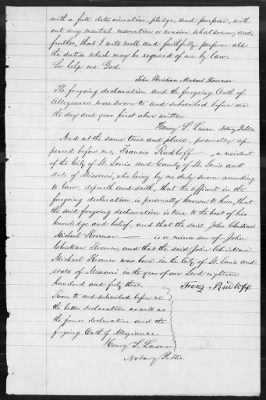 with a full determination, pledge, and purpose, with-
out any mental reservation or evasion whatsoever, and
further, that I will well and faithfully perform all
the duties which may be required of me by law.
So help me God.
John Christian Michael
The forgoing declaration and the forgoing Oath of
Allegiance were sworn to and subscribed before me
the day and year first above written
Henry S. Notary Public
And at the same time and place, personally ap-
peared before me, Francis Rudloff, a resident
of the City of St Louis and County of St Louis and
state of Missouri, who being by me duly sworn according
to law, deposeth and saith, that the affiant in the
forgoing declaration is personally known to him, that
the said forgoing declaration is true to the best of his
knowledge and belief, and that the said John Christian
Michael is a minor son of John
Christian and that the said John Christian
Michael was born in the City of St Louis and
state of Missouri in the year of our Lord eighteen
hundred and forty three. Franz Rudloff
Sworn to and subscribed before me
the latter declaration as well as
the former declaration and the
forgoing Oath of Allegiance.
Henry S.
Notary Public